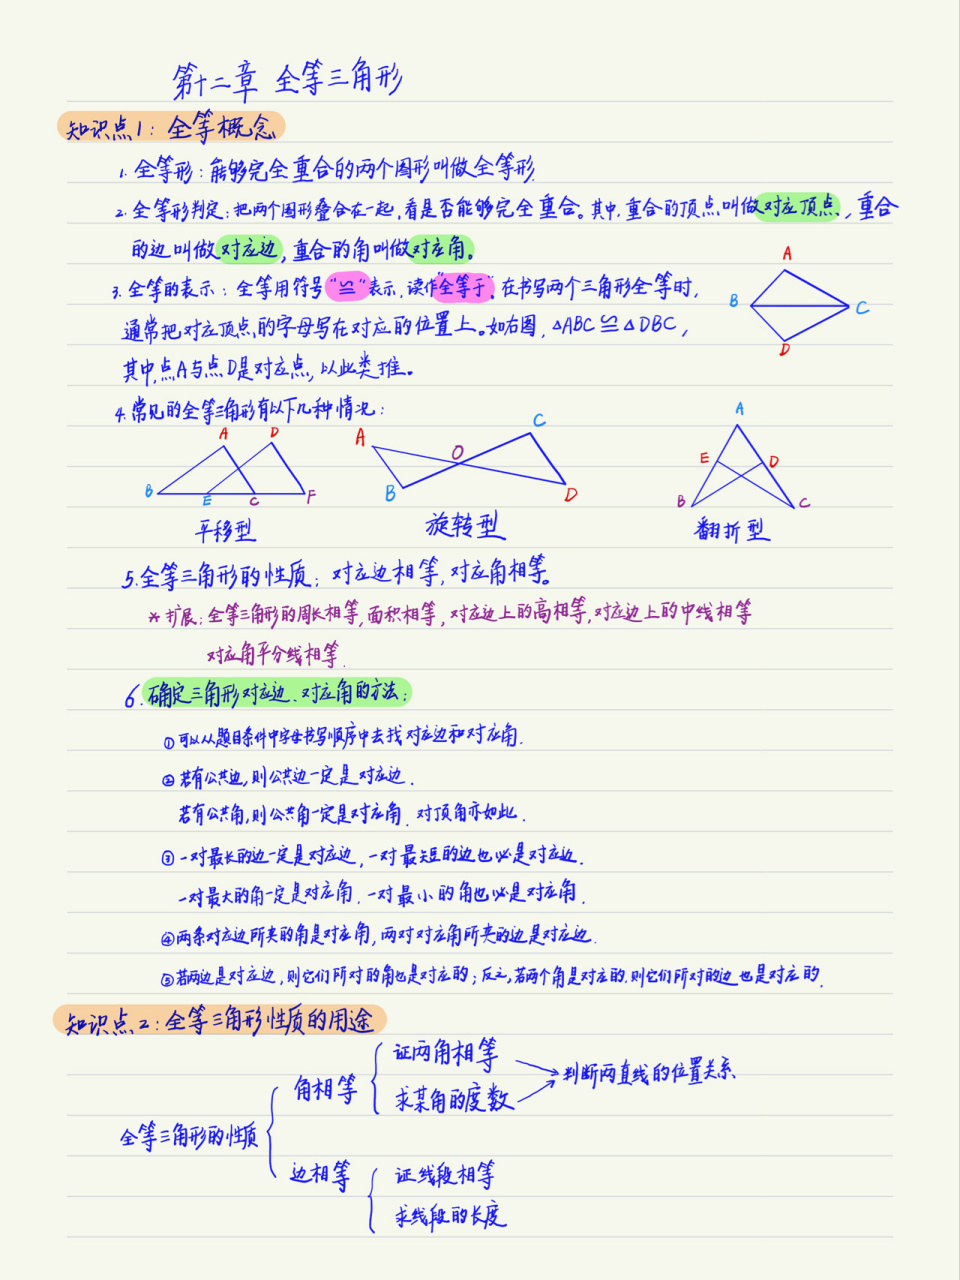 第十二章 全等三角形
知识点1：全等概念
1. 全等形：能够完全重合的两个图形叫做全等形.
2. 全等形判定：把两个图形叠合在一起，看是否能够完全重合。其中，重合的顶点叫做对应顶点，重合
的边叫做对应边，重合的角叫做对应角。
A
3. 全等的表示：全等用符号“≌”表示，读作“全等于”。在书写两个三角形全等时，
B
C
通常把对应顶点的字母写在对应的位置上。如右图，△ABC≌△DBC，
D
其中,点A与点D是对应点，以此类推。
4. 常见的全等三角形有以下几种情况：
A D
B E C F
平移型
A
B
O
C
D
旋转型
A
E D
B C
翻折型
5. 全等三角形的性质：对应边相等，对应角相等。
*扩展：全等三角形的周长相等，面积相等，对应边上的高相等，对应边上的中线相等
对应角平分线相等.
6. 确定三角形对应边、对应角的方法：
①可以从题目条件中字母书写顺序中去找对应边和对应角.
②若有公共边，则公共边一定是对应边.
若有公共角，则公共角一定是对应角.对顶角亦如此.
③一对最长的边一定是对应边，一对最短的边也必是对应边.
一对最大的角一定是对应角.一对最小的角也必是对应角.
④两条对应边所夹的角是对应角，两对对应角所夹的边是对应边.
⑤若两边是对应边，则它们所对的角也是对应的；反之，若两个角是对应的.则它们所对的边也是对应的.
知识点2：全等三角形性质的用途
全等三角形的性质
角相等
证两角相等
求某角的度数
判断两直线的位置关系.
边相等
证线段相等
求线段的长度